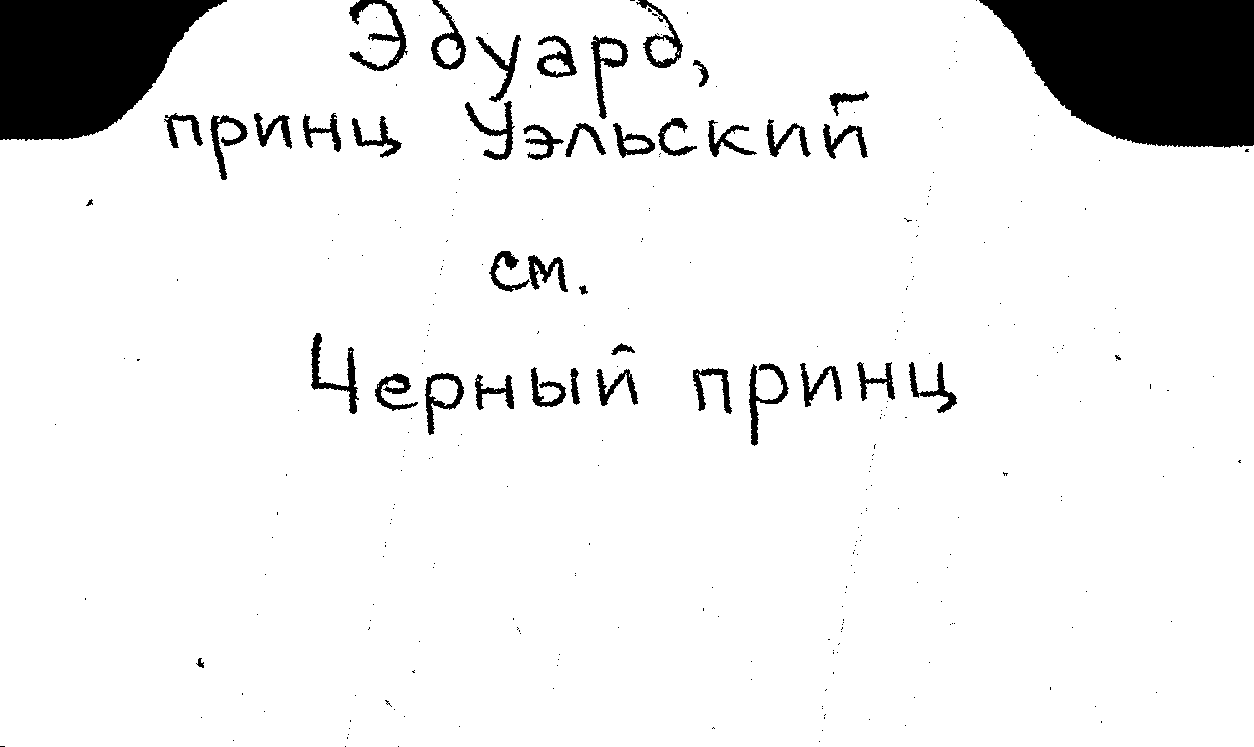 Эдуард,
принц Уэльский
см.
Черный принц